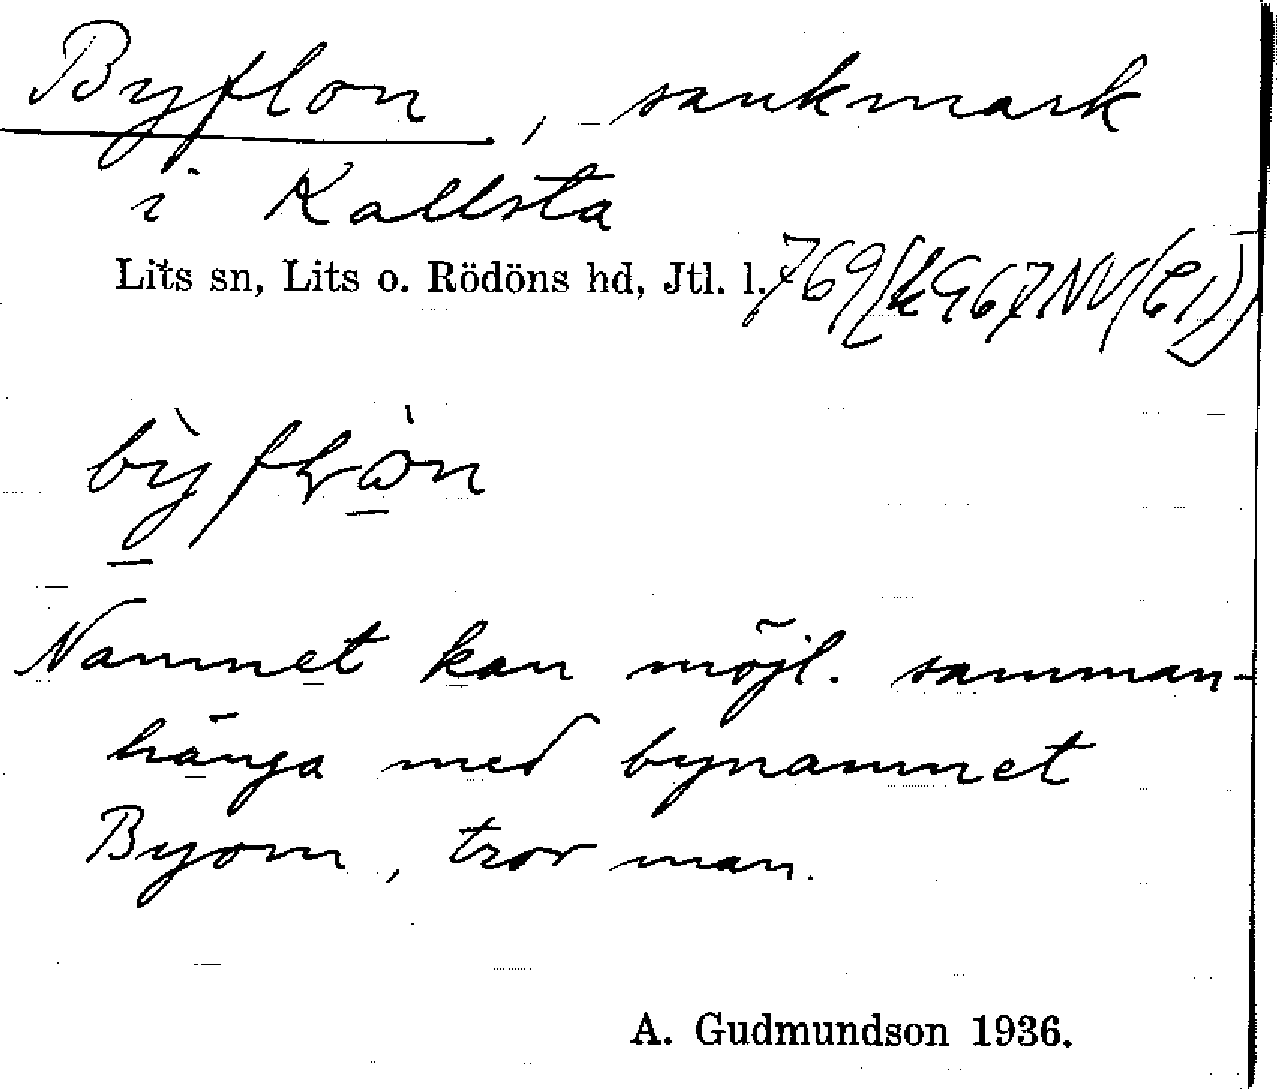 Byflon, sankmark
i Kallsta
Lits sn, Lits o. Rödöns hd, Jtl. l.
Namnet kan möjl. samman-
hänga med bynamnet
Byom, tror man.
A. Gudmundson 1936.